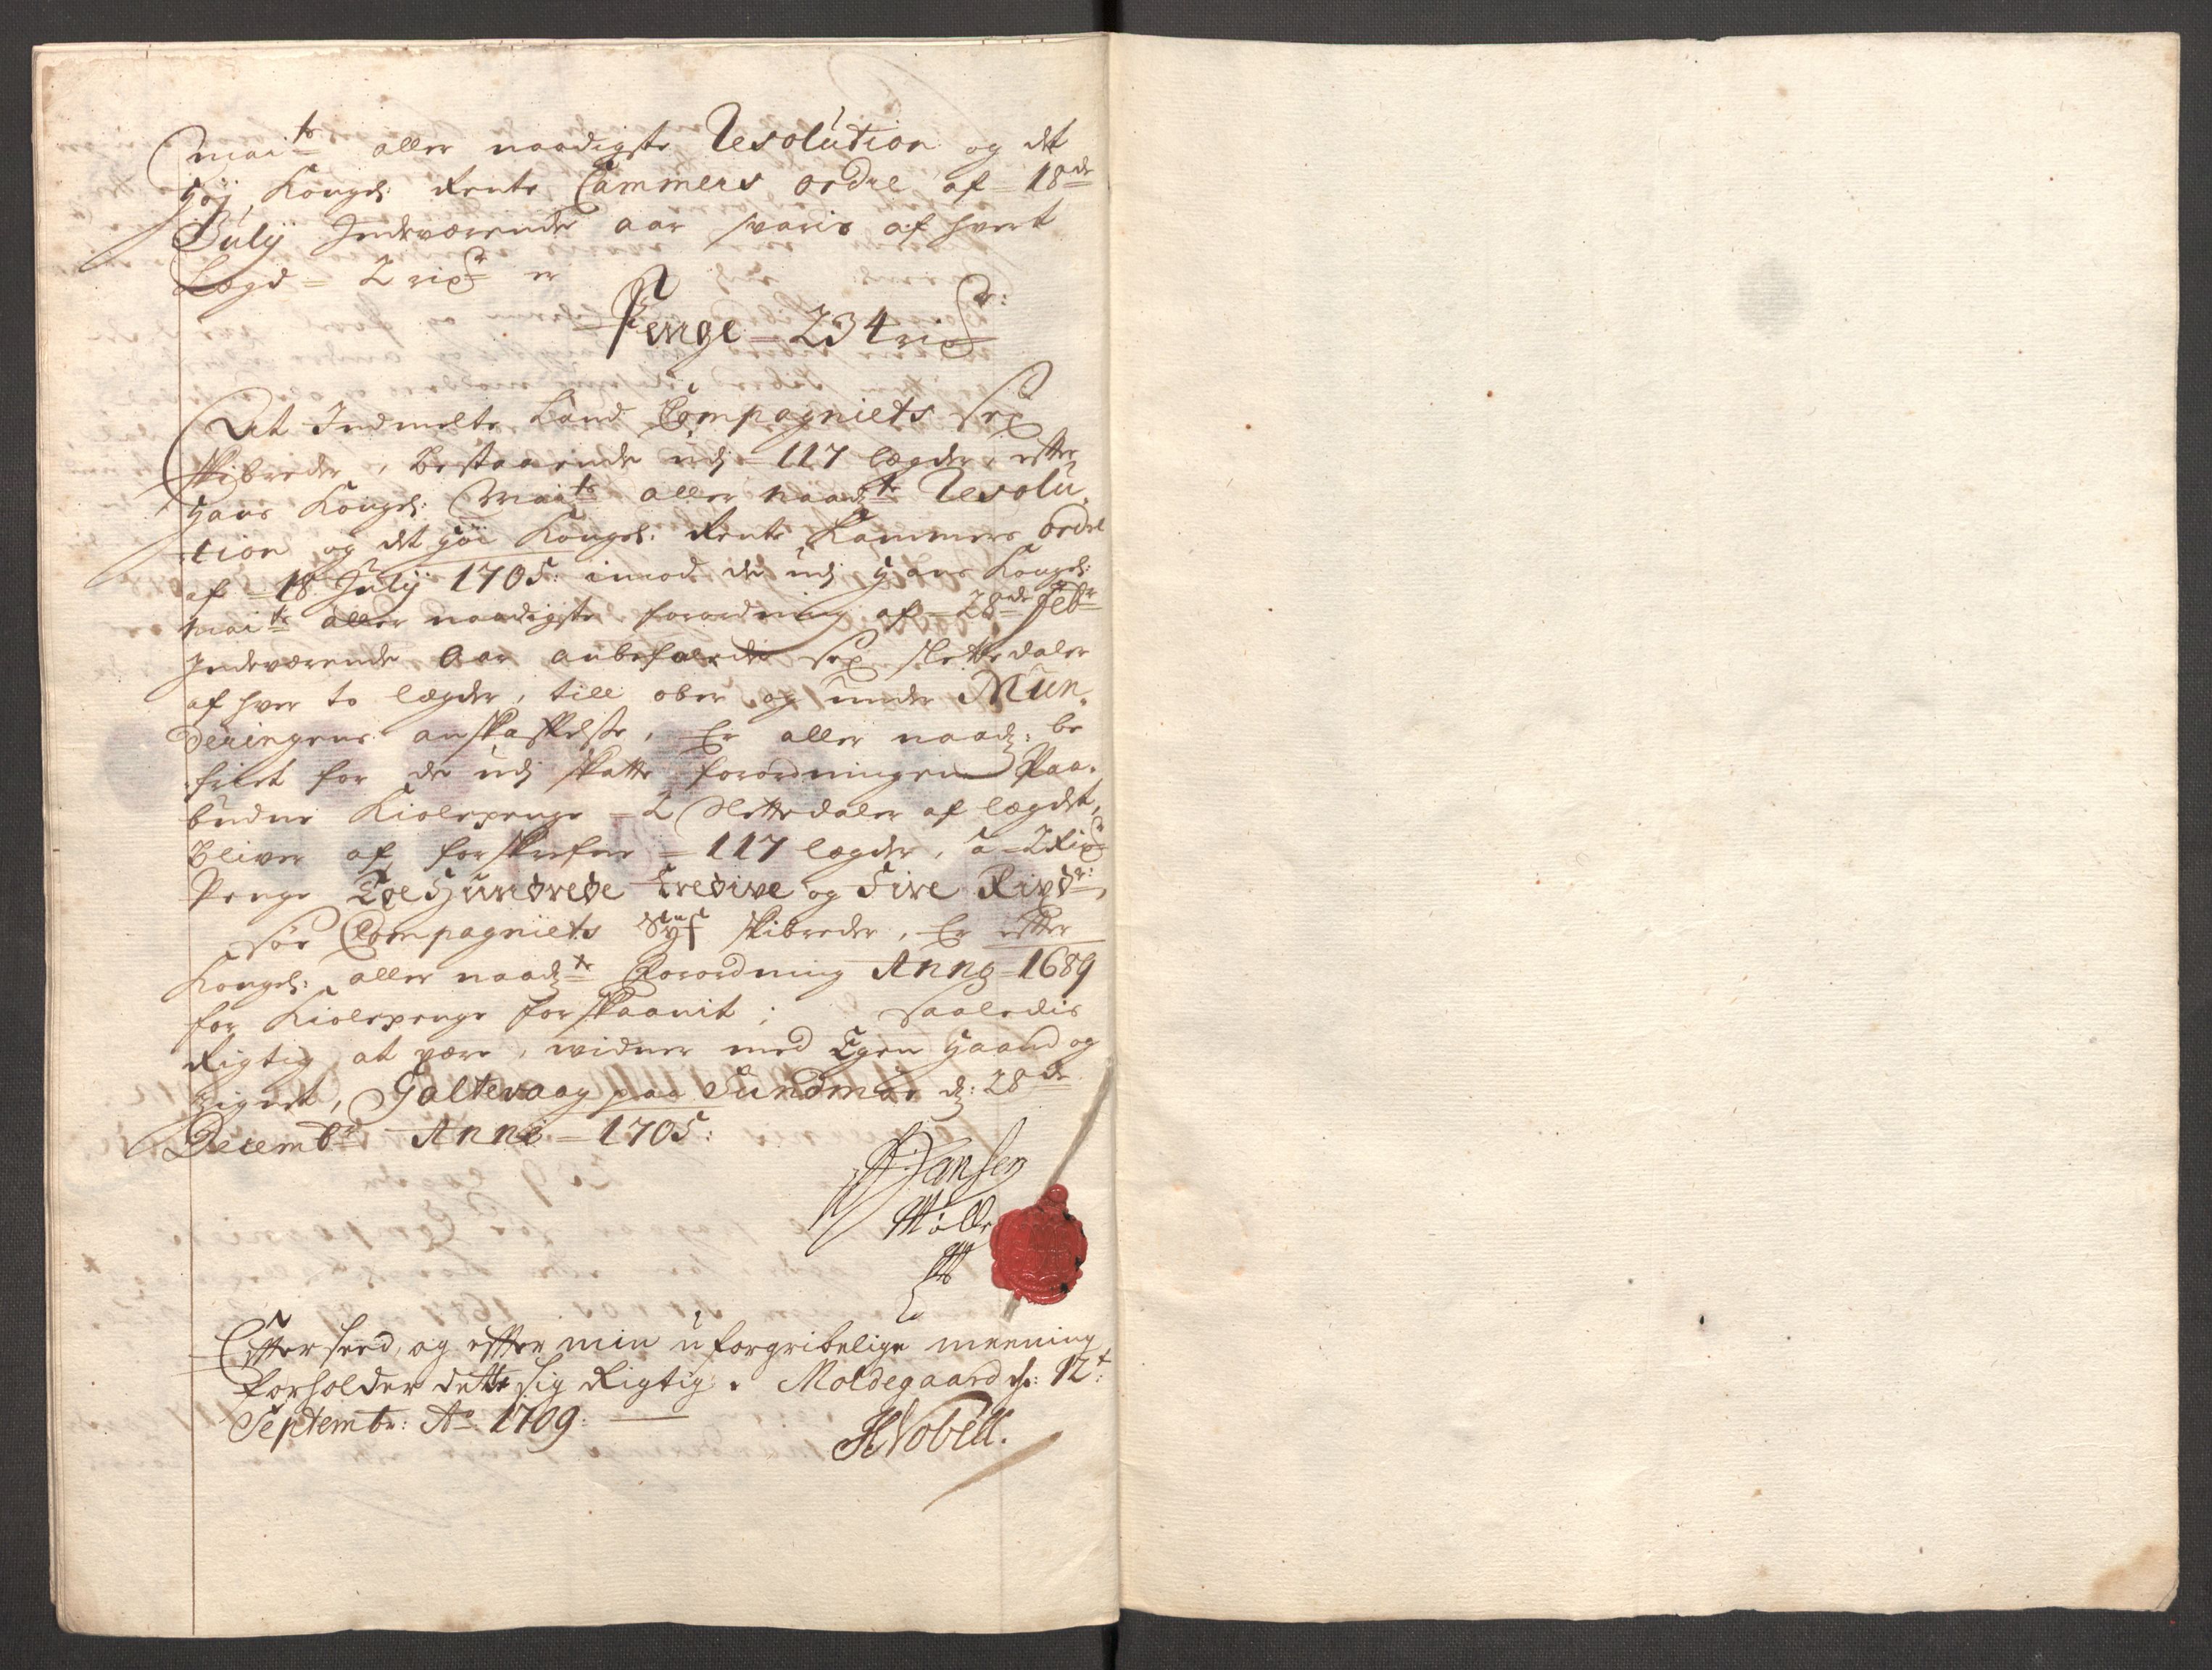 Mai:te aller naadigste Resolution og det
Høj Kongel: Rente Cammers ordre af 18de
Julij Indeværende aar svaris af hvert
Lægd = 2 rixdr er
Penge = 234 rixdr:
Det Indmelte Land Compagniets sex
skibreder, bestaaende udj = 117 lægder, efter
Hans Kongel: Mai:te aller naadigste Resolu¬
tion og det høi Kongel: Rente Kammers ordre
af 18 Julij 1705: imod de udj Hans Kongel:
Mai:te aller naadigste forordning af = 28de Febr
Indeværende Aar anbefalede sex slettedaler
af hver to lægder, till ober og under Mun¬
deringens anskaffelse, Er aller naadg: be
friet for de udj skatte forordningen Paa¬
budne Kiolepenge = 2 Slettedaler af lægdet,
bliver af forskrefne = 117 lægder, a 2 Rixdr
Penge Toe Hundrede Tredive og Fire Rixdr:
Søe Compagniets Syf skibreder, Er efter
Kongel: aller naadgte Forordning Anno 1689
for Kiolepenge forskaanit; Saaledis
Rigtig at være, widner med Egen Haand og
Zignet, Galtevaag paa Sundmør d: 28de
Decembr Anno = 1705:
Jansen
Mølle
Efterseed, og efter min uforgribelige meening
forholder dette sig Rigtig. Moldegaard d: 12t:
Septembr: Ao 1709:
HNobell.